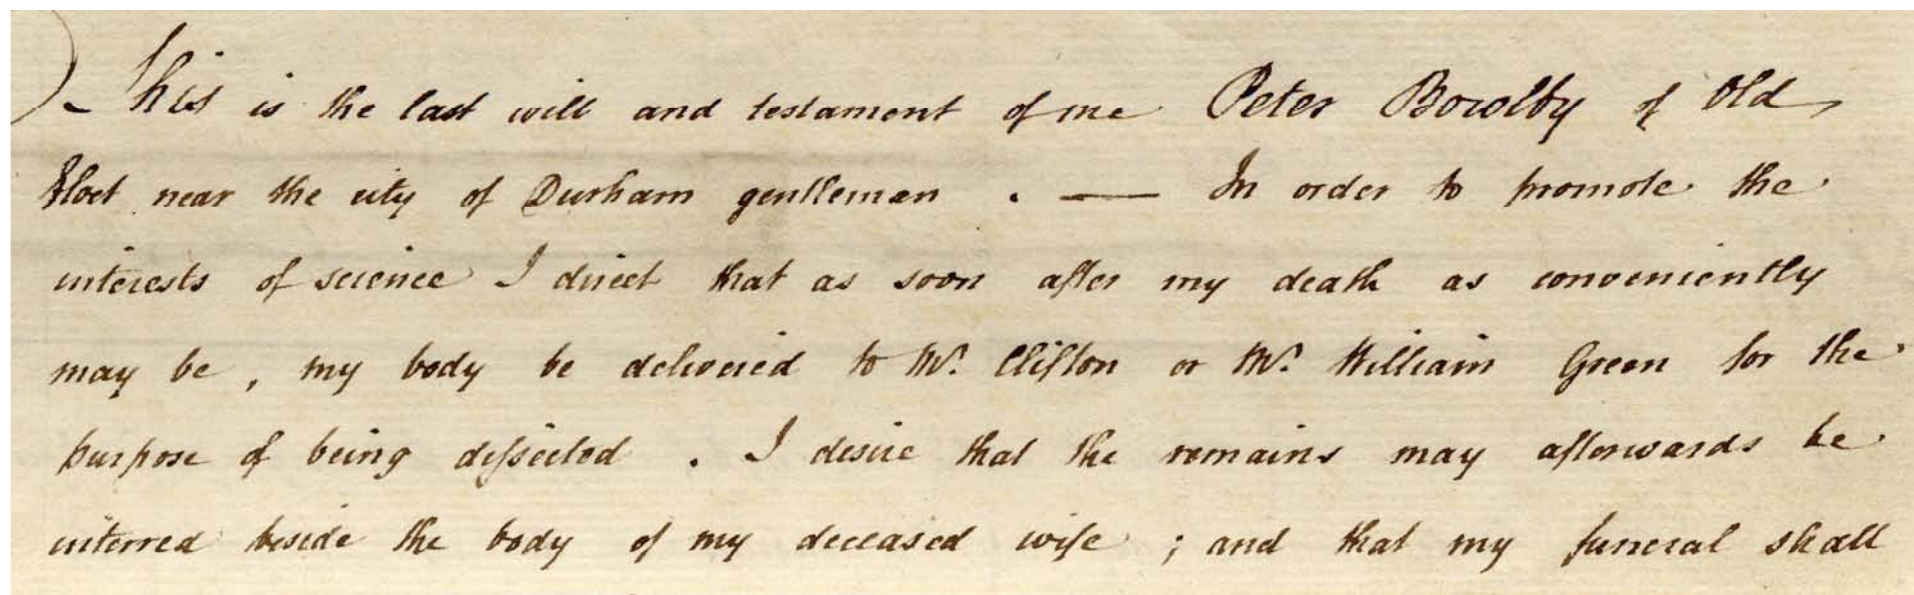 This is the last will and testament of me Peter Bowlby of Old
near the city of Durham gentleman . — In order to promote the
interests of science I direct that as soon after my death as conveniently
may be , my body be delivered to Mr. Clifton or Mr. William Green for the
purpose of being dissected . I desire that the remains may afterwards be
interred beside the body of my deceased wife ; and that my funeral shall